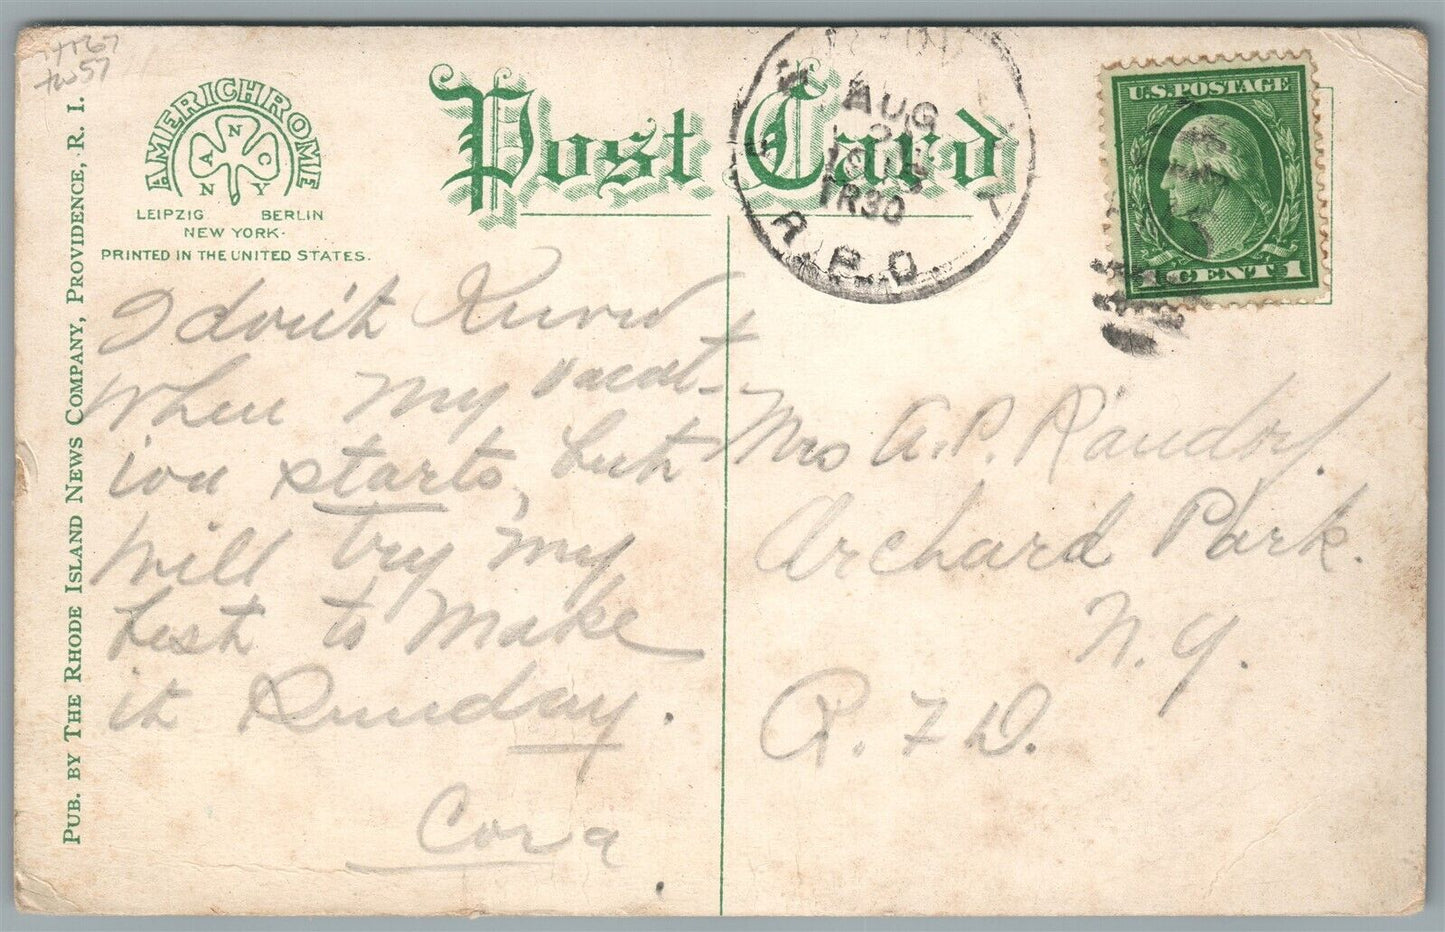 tw57
AMERICHROME
A N C
N Y
LEIPZIG BERLIN
NEW YORK.
PRINTED IN THE UNITED STATES.
PUB. BY THE RHODE ISLAND NEWS COMPANY, PROVIDENCE, R. I.
Post Card
AUG
TR30
R.P.O.
U.S. POSTAGE
1 CENT 1
I don't Know
when my vacat-
ion starts, but
Will try my
best to Make
it Sunday.
Cora
Mrs A. P.
Orchard Park.
N. Y.
R. F. D.